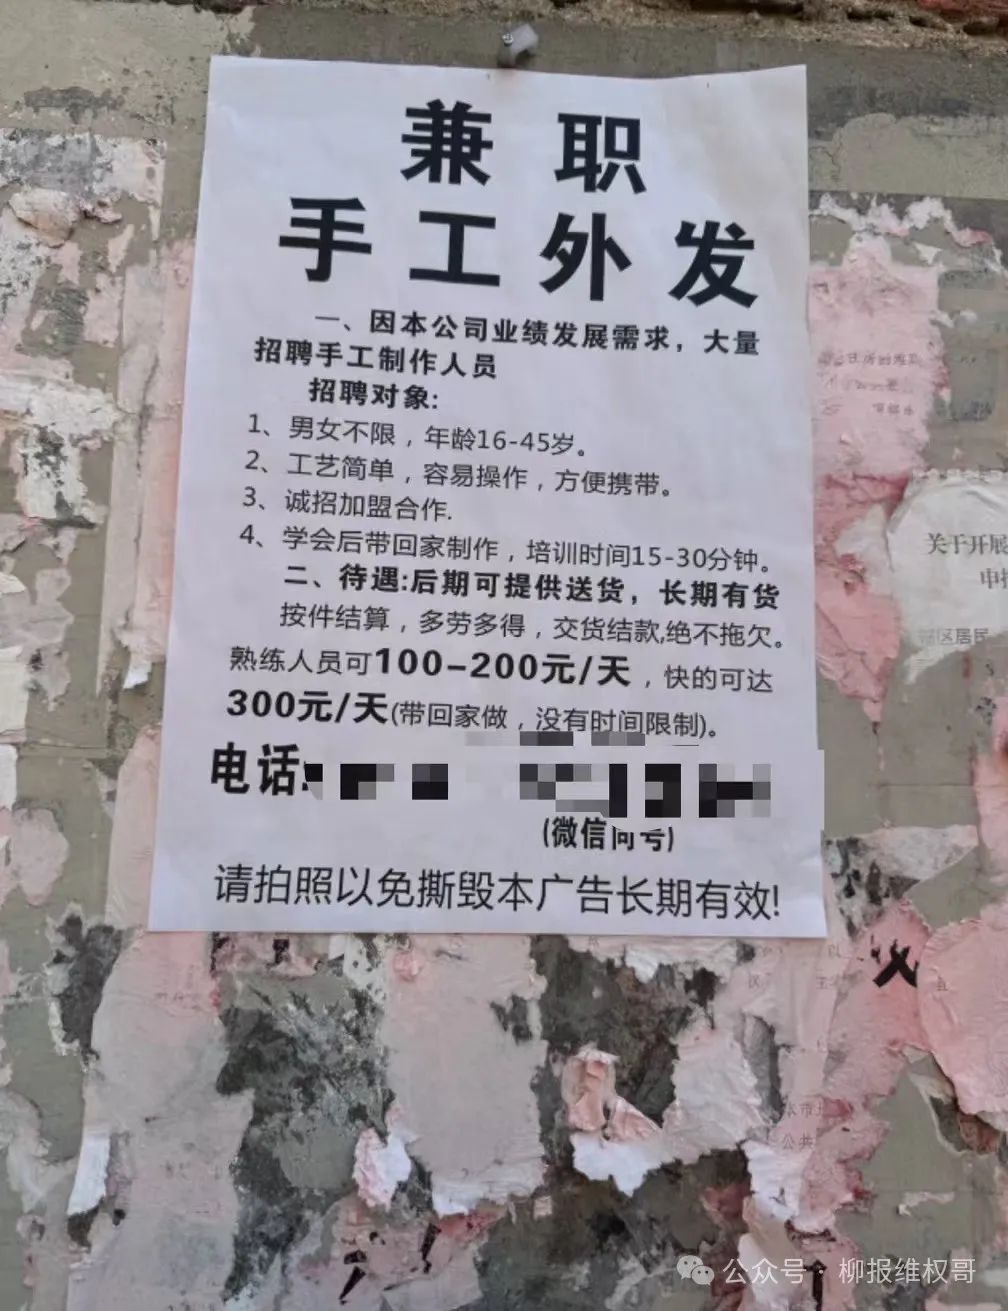 兼职
手工外发
一、因本公司业绩发展需求，大量
招聘手工制作人员
招聘对象:
1、男女不限，年龄16-45岁。
2、工艺简单，容易操作，方便携带。
3、诚招加盟合作.
4、学会后带回家制作，培训时间15-30分钟。
二、待遇:后期可提供送货，长期有货
按件结算，多劳多得，交货结款,绝不拖欠。
熟练人员可100-200元/天，快的可达
300元/天(带回家做，没有时间限制)。
电话:
(微信同号)
请拍照以免撕毁本广告长期有效!
关于开展
申
区居民
公共
公众号·柳报维权哥